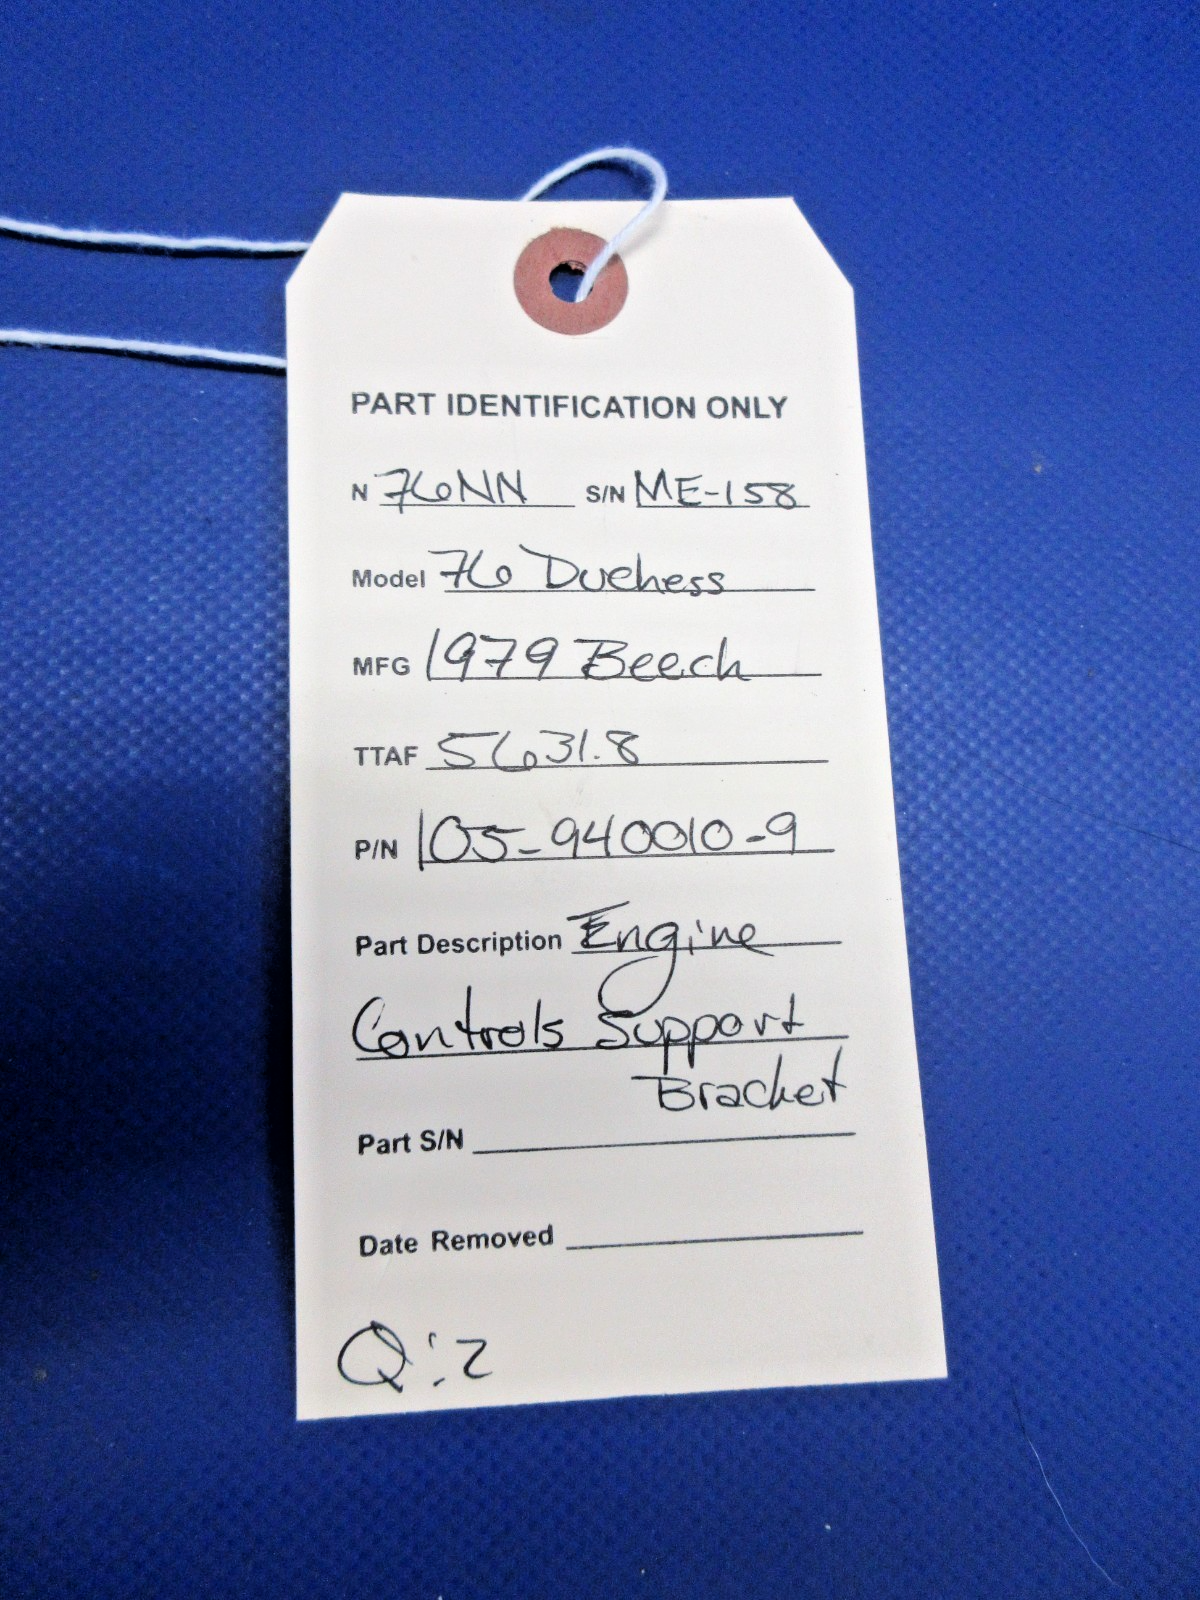 PART IDENTIFICATION ONLY
N 76NN S/N ME-158
Model 76 Duchess
MFG 1979 Beech
TTAF 5631.8
P/N 105-940010-9
Part Description Engine
Controls Support
Bracket
Part S/N
Date Removed
Q:2